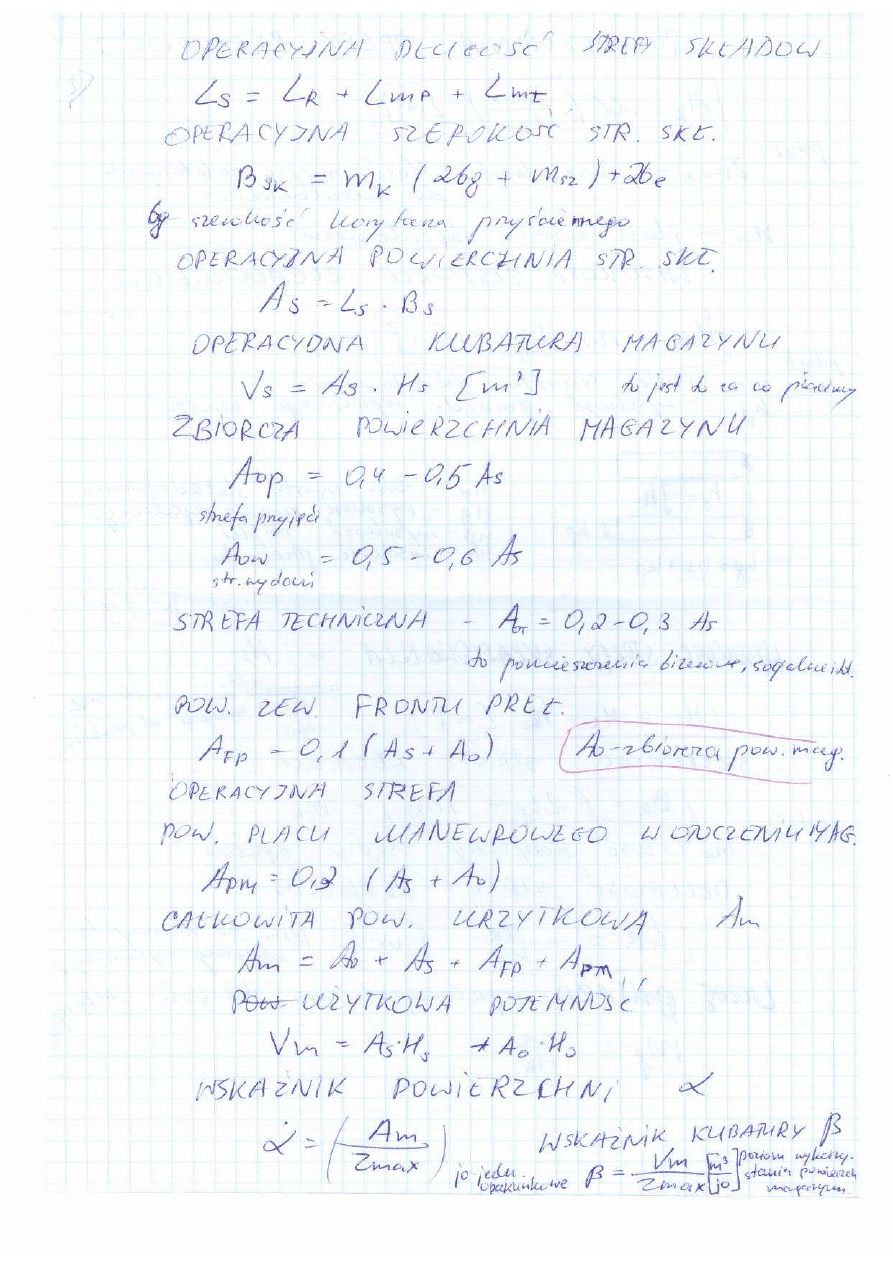 OPERACYJNA DŁUGOŚĆ STREFY SKŁADOW.
Ls = LR + Lmp + Lmt
OPERACYJNA SZEROKOŚĆ STR. SKŁ.
Bsk = mk (2bg + msz) + 2be
bg szerokość korytarza przyściennego
OPERACYJNA POWIERCHNIA STR. SKŁ.
As = Ls · Bs
OPERACYJNA KUBATURA MAGAZYNU
Vs = As · Hs [m³] to jest to za co płacimy
ZBIORCZA POWIERZCHNIA MAGAZYNU
Aop = 0,4 - 0,5 As
strefa przyjęć
Aow = 0,5 - 0,6 As
str. wydań
STREFA TECHNICZNA - At = 0,2 - 0,3 As
to pomieszczenia biurowe, socjalne itd.
POW. ZEW. FRONTU PREŁ.
AFP - 0,1 (As + Ao) Ao - zbiorcza pow. mag.
OPERACYJNA STREFA
POW. PLACU MANEWROWEGO W OTOCZENIU MAG.
Apm = 0,2 (As + Ao)
CAŁKOWITA POW. URZYTKOWA Am
Am = Ao + As + AFP + APM
POW UŻYTKOWA POJEMNOŚĆ
Vm = As·Hs + Ao·Ho
WSKAŹNIK POWIERZCHNI α
α = (Am / Zmax) jo-jedn. opakunkowe
WSKAŹNIK KUBATURY β
β = Vm / Zmax [m³/jo] poziom wykorzy-
stania powierzch
magazynu